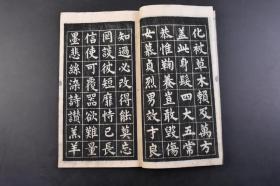 化被草木賴及萬方
蓋此身髮四大五常
恭惟鞠養豈敢毀傷
女慕貞烈男效才良
知過必改得能莫忘
罔談彼短靡恃己長
信使可覆器欲難量
墨悲絲染詩讚羔羊